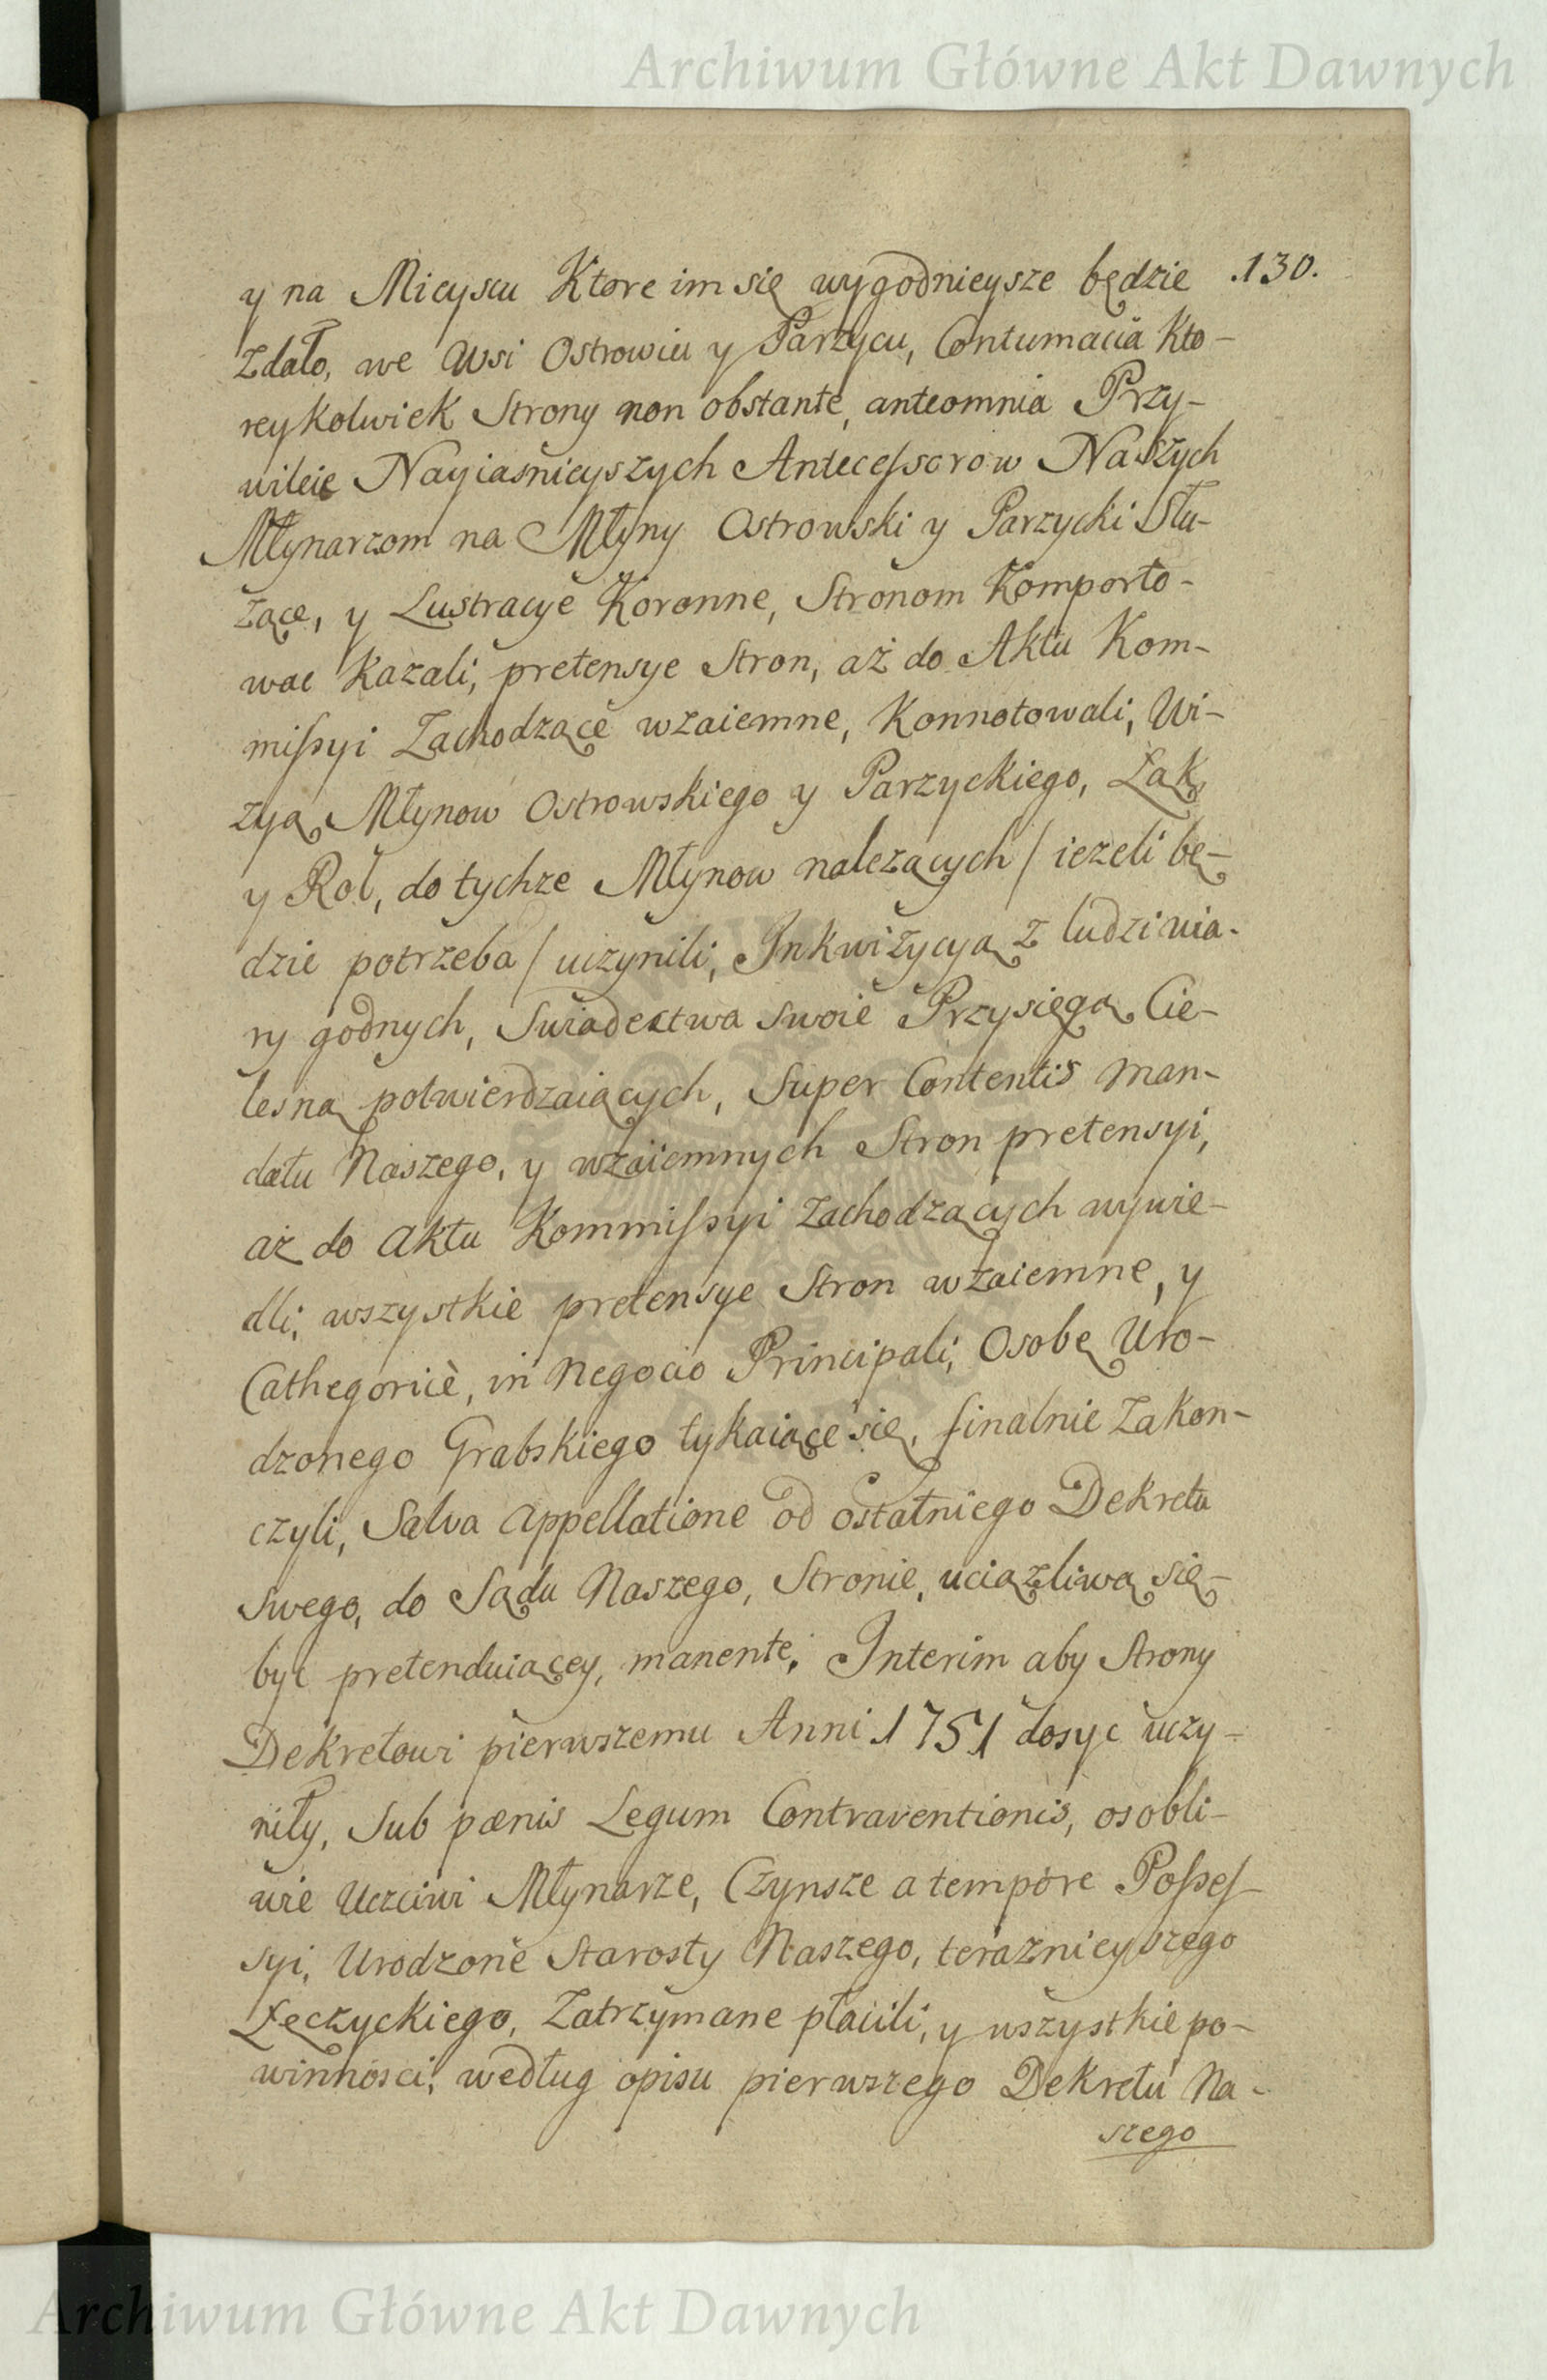 Archiwum Główne Akt Dawnych
.130.
y na Mieyscu Ktore im się wygodnieysze będzie
zdało, we Wsi Ostrowiu y Parzycu, Contumacia Kto-
reykolwiek Strony non obstante, anteomnia Przy-
wileie Nayiaśnieyszych Antecessorow Naszych
Młynarzom na Młyny Ostrowski y Parzycki Słu-
żące, y Lustracye Koronne, Stronom Komporto-
wac kazali, pretensye Stron, aż do Aktu Kom-
missyi Zachodzące wzaiemne, Konnotowali, Wi-
zyą Młynow Ostrowskiego y Parzyckiego, Łąk
y Rol, do tychze Młynow nalezących / iezeli bę-
dzie potrzeba / uczynili, Inkwizycyą z ludzi wia-
ry godnych, Swiadectwa swoie Przysięgą Cie-
lesną potwierdzaiących, Super Contentis Man-
datu Naszego, y wzaiemnych Stron pretensyi,
aż do Aktu Kommissyi Zachodzących wywie-
dli, wszystkie pretensye Stron wzaiemne, y
Cathegoricè, in Negocio Principali, Osobę Uro-
dzonego Grabskiego tykaiące się, finalnie Zakon-
czyli, Salva Appellatione od ostatniego Dekretu
Swego, do Sądu Naszego, Stronie, uciązliwą się
byc pretenduiącey, manente. Interim aby Strony
Dekretowi pierwszemu Anni 1751 dosyc uczy-
niły, Sub pænis Legum Contraventionis, osobli-
wie Uczciwi Młynarze, Czynsze a tempore Posses-
syi, Urodzone Starosty Naszego, teraznieyszego
Łęczyckiego, Zatrzymane płacili, y wszystkie po-
winnosci, według opisu pierwszego Dekretu Na-
szego
Archiwum Główne Akt Dawnych